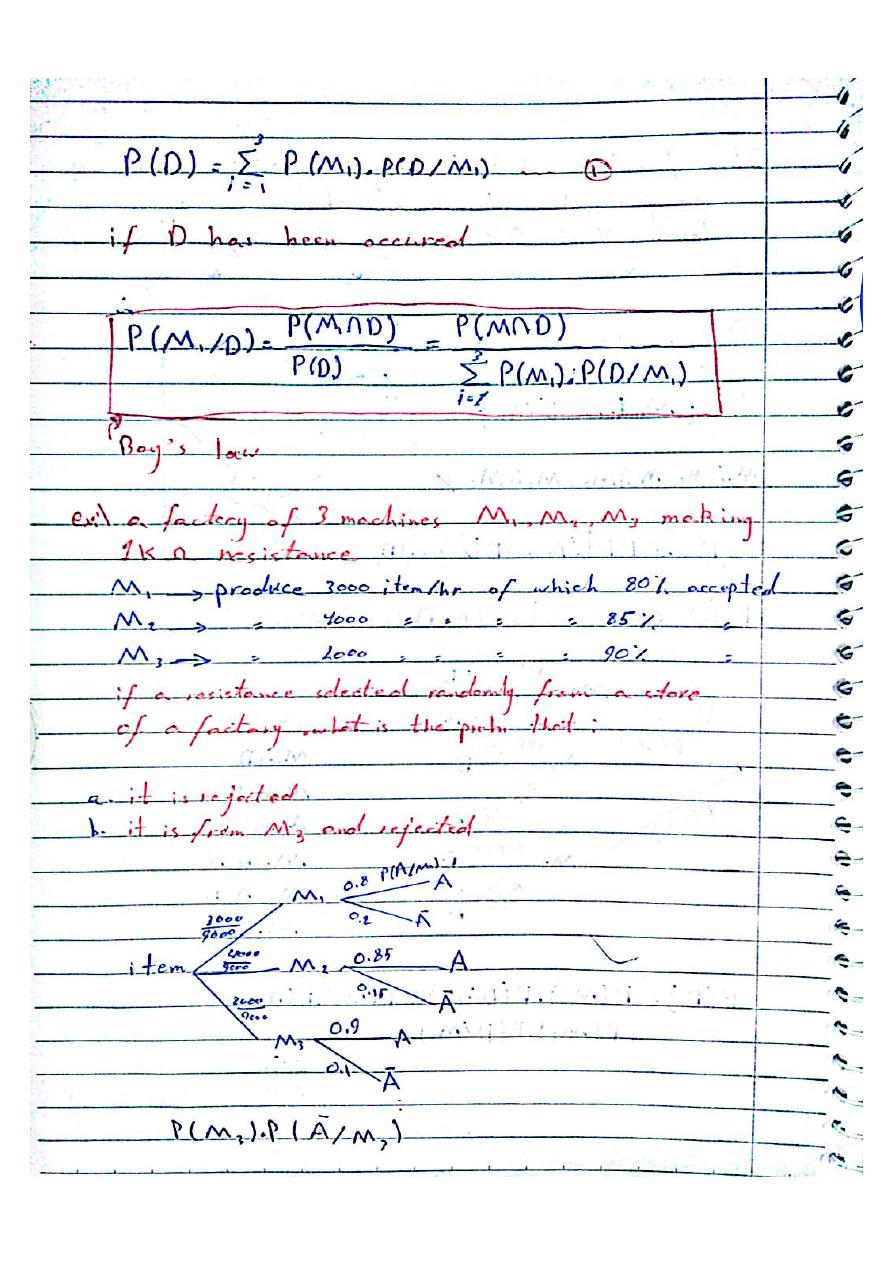 P(D) = 3 Σ i=1 P(M₁).P(D/M₁) ...... ①
if D has been occured
P(M₁/D) = P(M∩D) / P(D) = P(M∩D) / 3 Σ i=1 P(M₁).P(D/M₁)
Boy's law
ex:\ a factory of 3 machines M₁, M₂, M₃ making
1K Ω resistance
M₁ → produce 3000 item/hr of which 80% accepted
M₂ → = 4000 = = = = 85% =
M₃ → = 2000 = = = = 90% =
if a resistance selected randomly from a store
of a factory what is the probn that :
a. it is rejected.
b. it is from M₃ and rejected
0.8 P(A/M₁)
M₁ A
3000/9000 0.2 Ā
item 4000/9000 M₂ 0.85 A
0.15 Ā
2000/9000
M₃ 0.9 A
0.1 Ā
P(M₃).P(Ā/M₃)